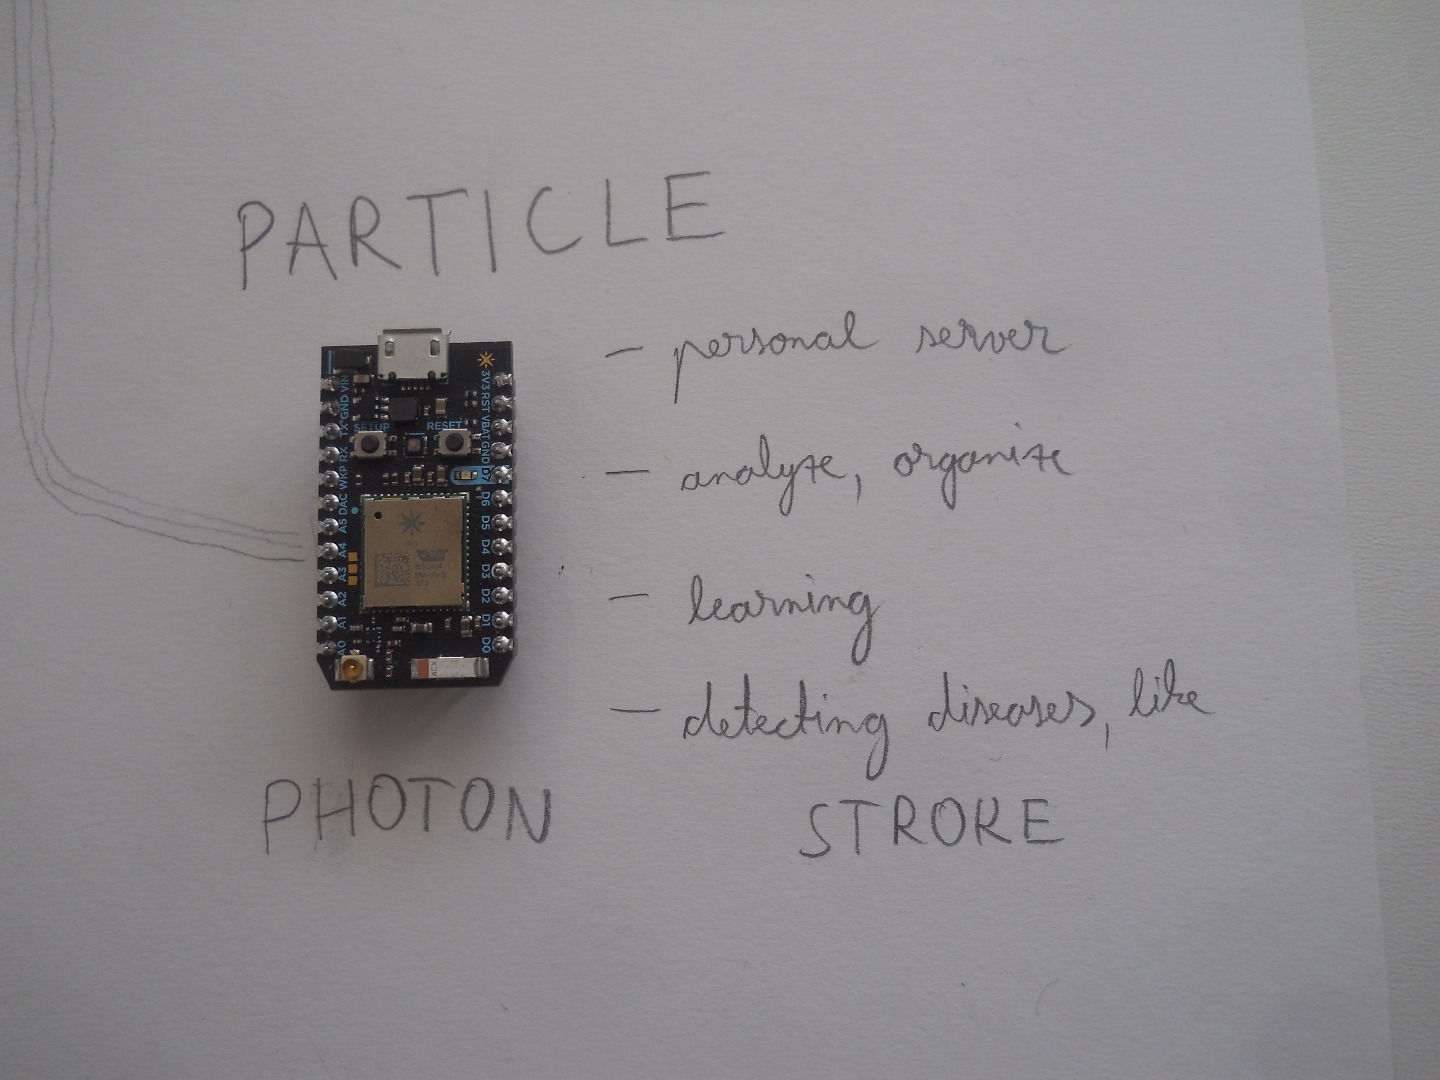 PARTICLE
- personal server
- analyze, organize
- learning
- detecting diseases, like
STROKE
PHOTON
SETUP
RESET
VIN
GND
TX
RX
WKP
DAC
A5
A4
A3
A2
A1
A0
3V3
RST
VBAT
GND
D7
D6
D5
D4
D3
D2
D1
D0